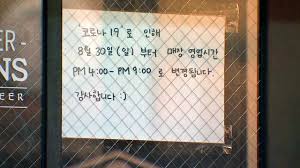 '코로나 19'로 인해
8월 30일(일)부터 매장 영업시간
PM 4:00 - PM 9:00 로 변경됩니다.
감사합니다 :)
ER-
NS
EER